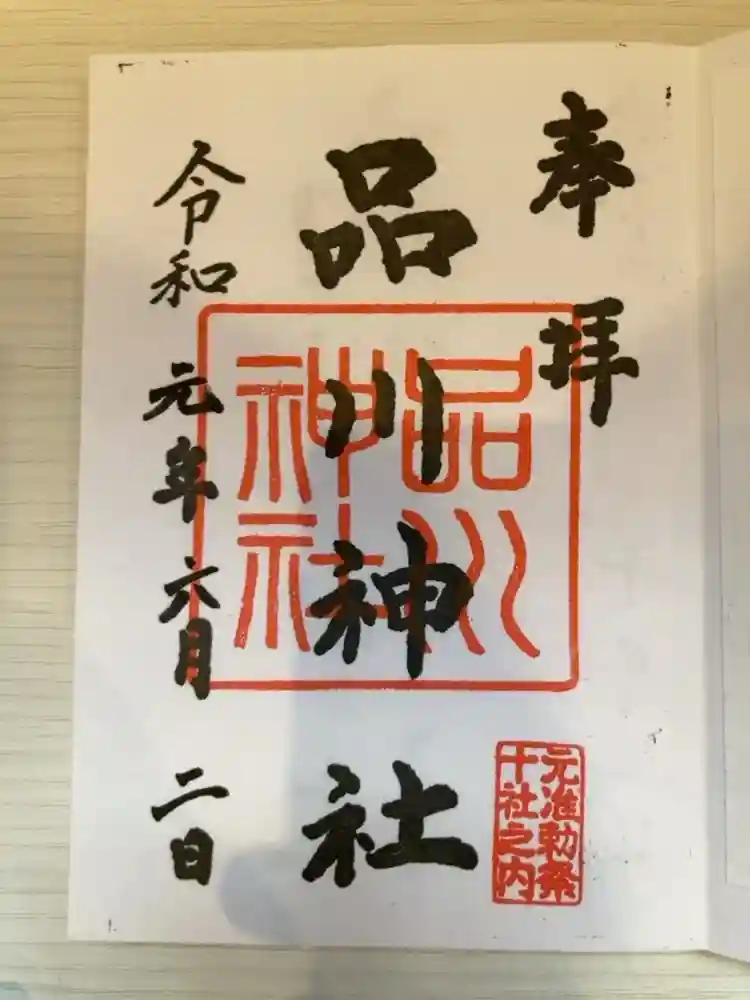 奉拝
品川神社
品川
神社
元准勅祭
十社之内
令和元年六月二日